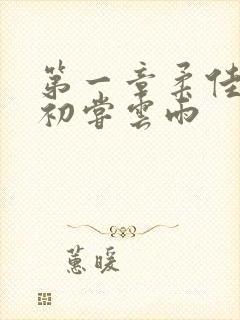 第一章柔佳
初嘗雲雨
蕙暖